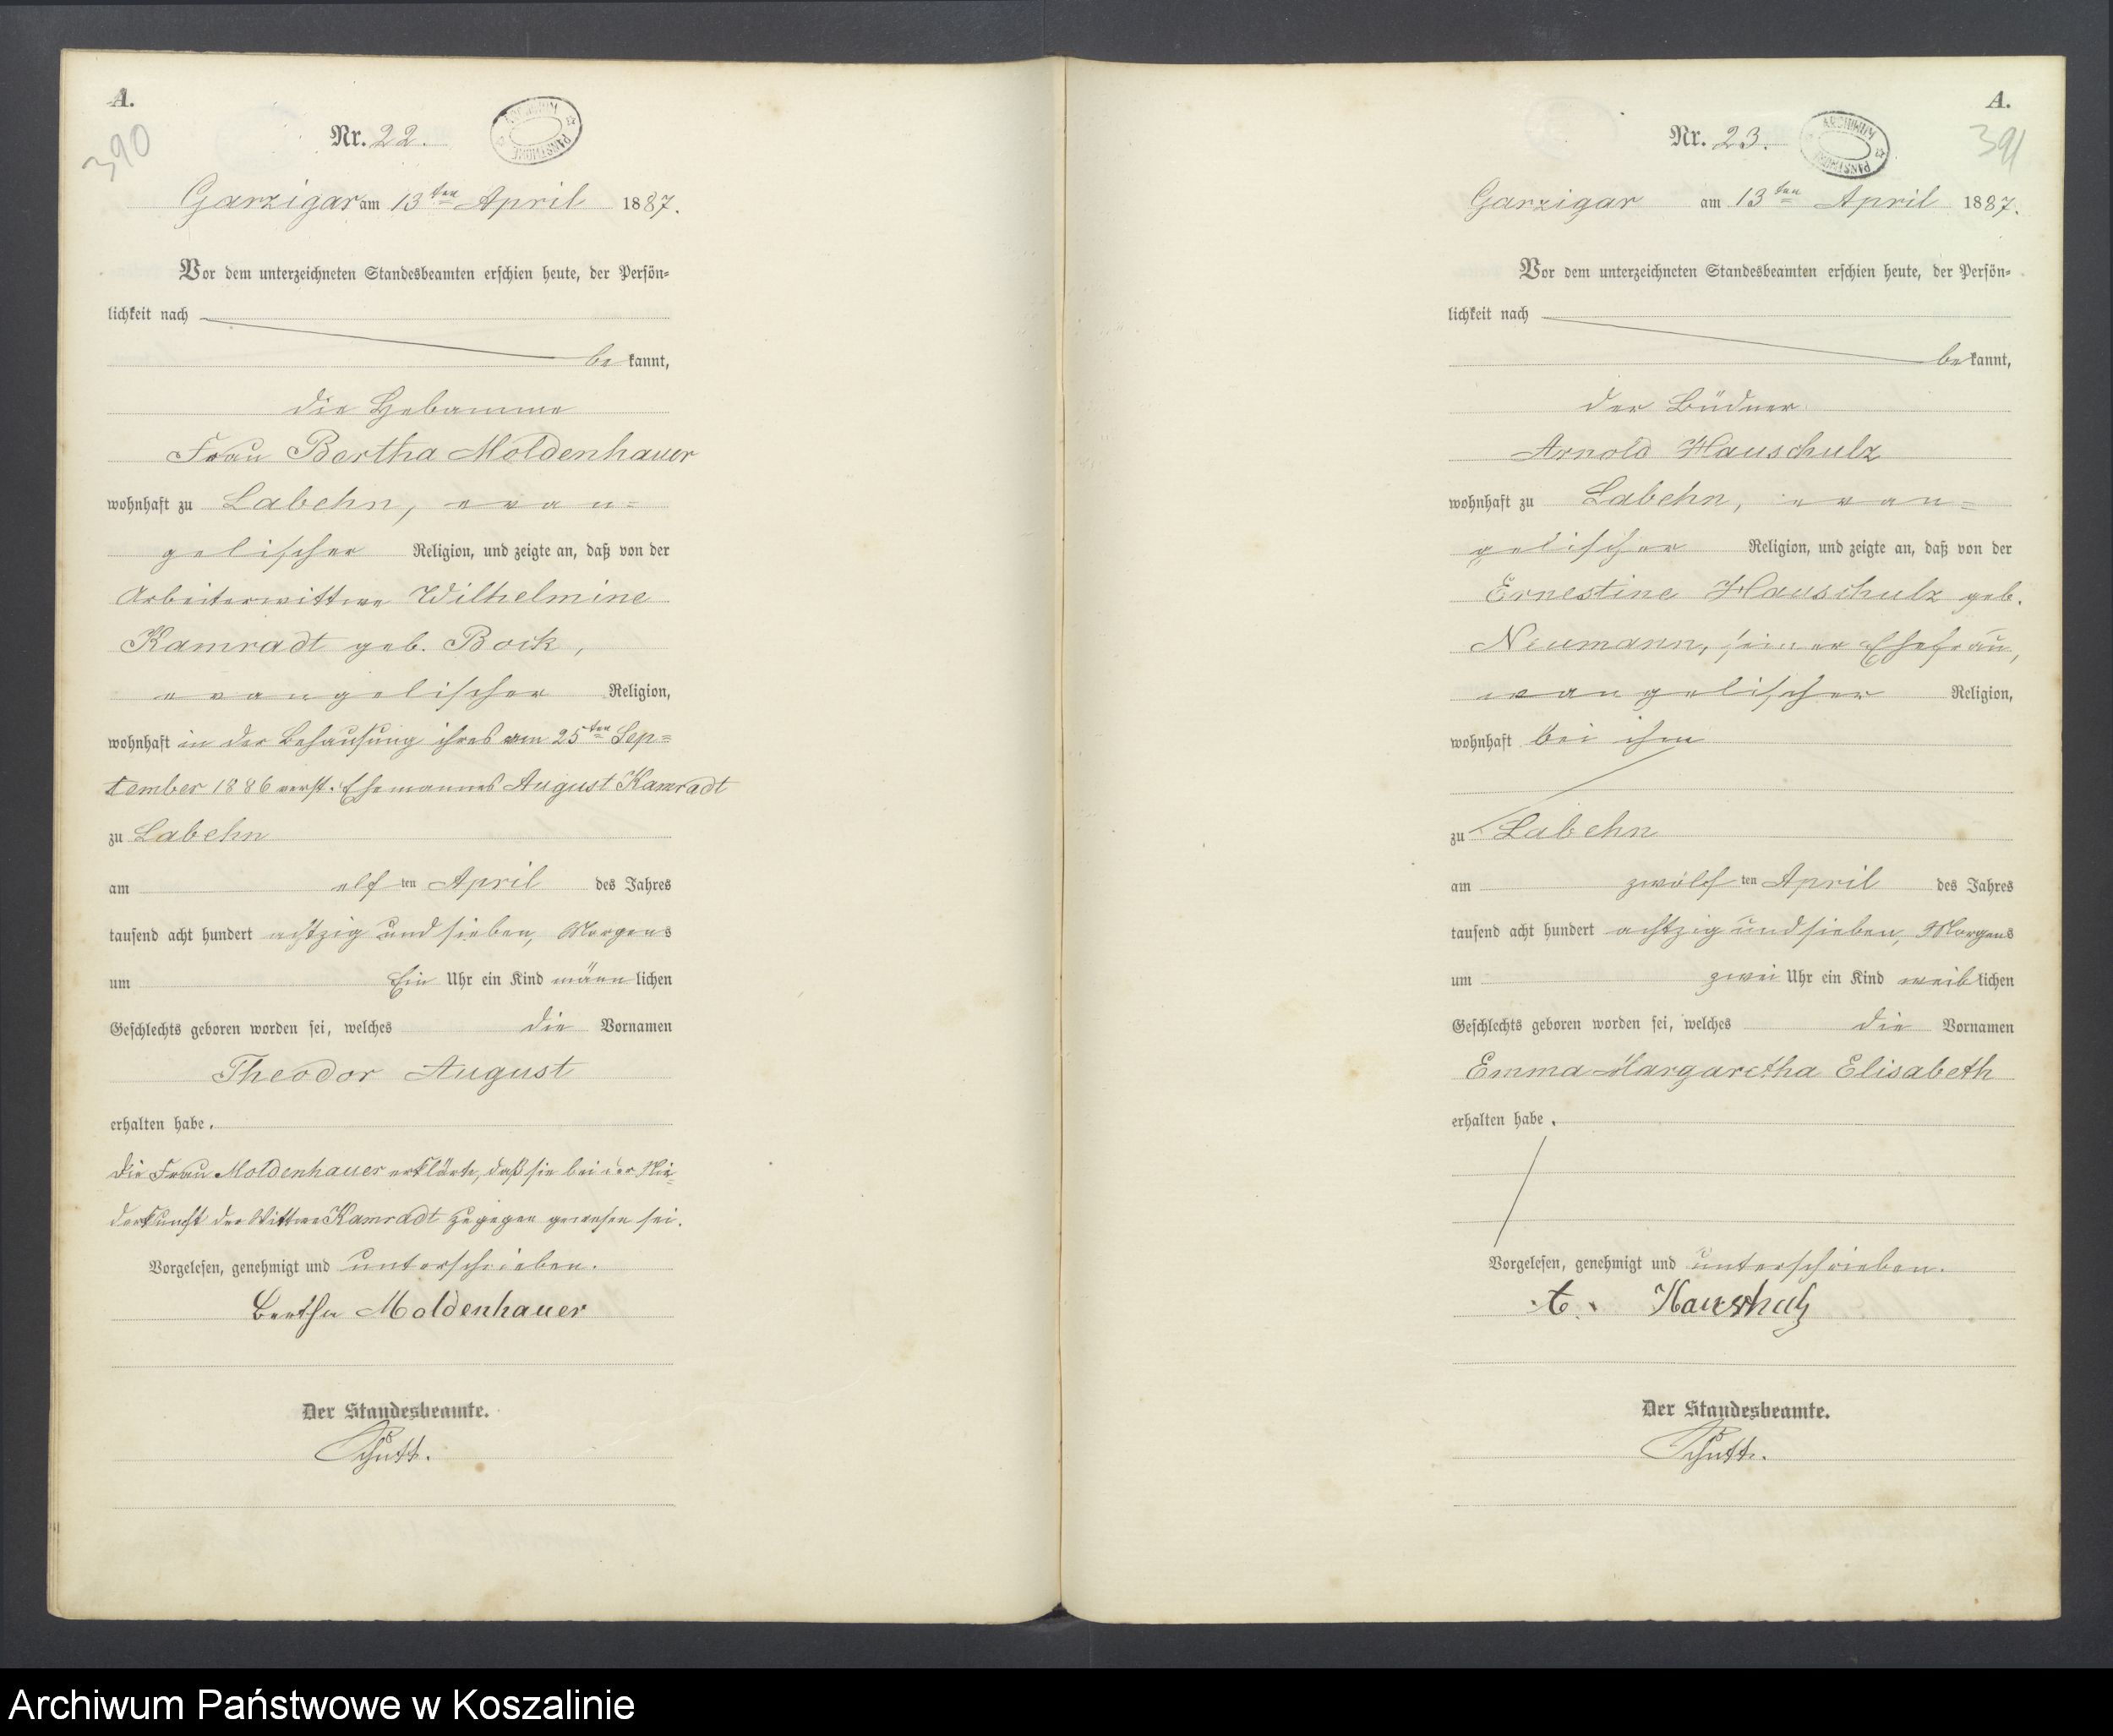 A.
390
Nr. 22.
ARCHIWUM PAŃSTWOWE
Garzigar am 13ten April 1887.
Vor dem unterzeichneten Standesbeamten erschien heute, der Persön=
lichkeit nach
be kannt,
die Hebamme
Frau Bertha Moldenhauer
wohnhaft zu Labehn, evan=
gelischer Religion, und zeigte an, daß von der
Arbeiterwittwe Wilhelmine
Kamradt geb. Bock,
evangelischer Religion,
wohnhaft in der Behausung ihres am 25ten Sep=
tember 1886 verst. Ehemannes August Kamradt
zu Labehn
am elf ten April des Jahres
tausend acht hundert achtzig und sieben, Morgens
um Ein Uhr ein Kind männ lichen
Geschlechts geboren worden sei, welches die Vornamen
Theodor August
erhalten habe.
Die Frau Moldenhauer erklärte, daß sie bei der Nie=
derkunft der Wittwe Kamradt zugegen gewesen sei.
Vorgelesen, genehmigt und unterschrieben.
Bertha Moldenhauer
Der Standesbeamte.
Schutt.
A.
391
Nr. 23.
ARCHIWUM PAŃSTWOWE
Garzigar am 13ten April 1887.
Vor dem unterzeichneten Standesbeamten erschien heute, der Persön=
lichkeit nach
be kannt,
der Büdner
Arnold Hauschulz
wohnhaft zu Labehn, evan=
gelischer Religion, und zeigte an, daß von der
Ernestine Hauschulz geb.
Neumann, seiner Ehefrau,
evangelischer Religion,
wohnhaft bei ihm
zu Labehn
am zwölf ten April des Jahres
tausend acht hundert achtzig und sieben, Morgens
um zwei Uhr ein Kind weib lichen
Geschlechts geboren worden sei, welches die Vornamen
Emma Margaretha Elisabeth
erhalten habe.
Vorgelesen, genehmigt und unterschrieben.
Hauschulz
Der Standesbeamte.
Schutt.
Archiwum Państwowe w Koszalinie